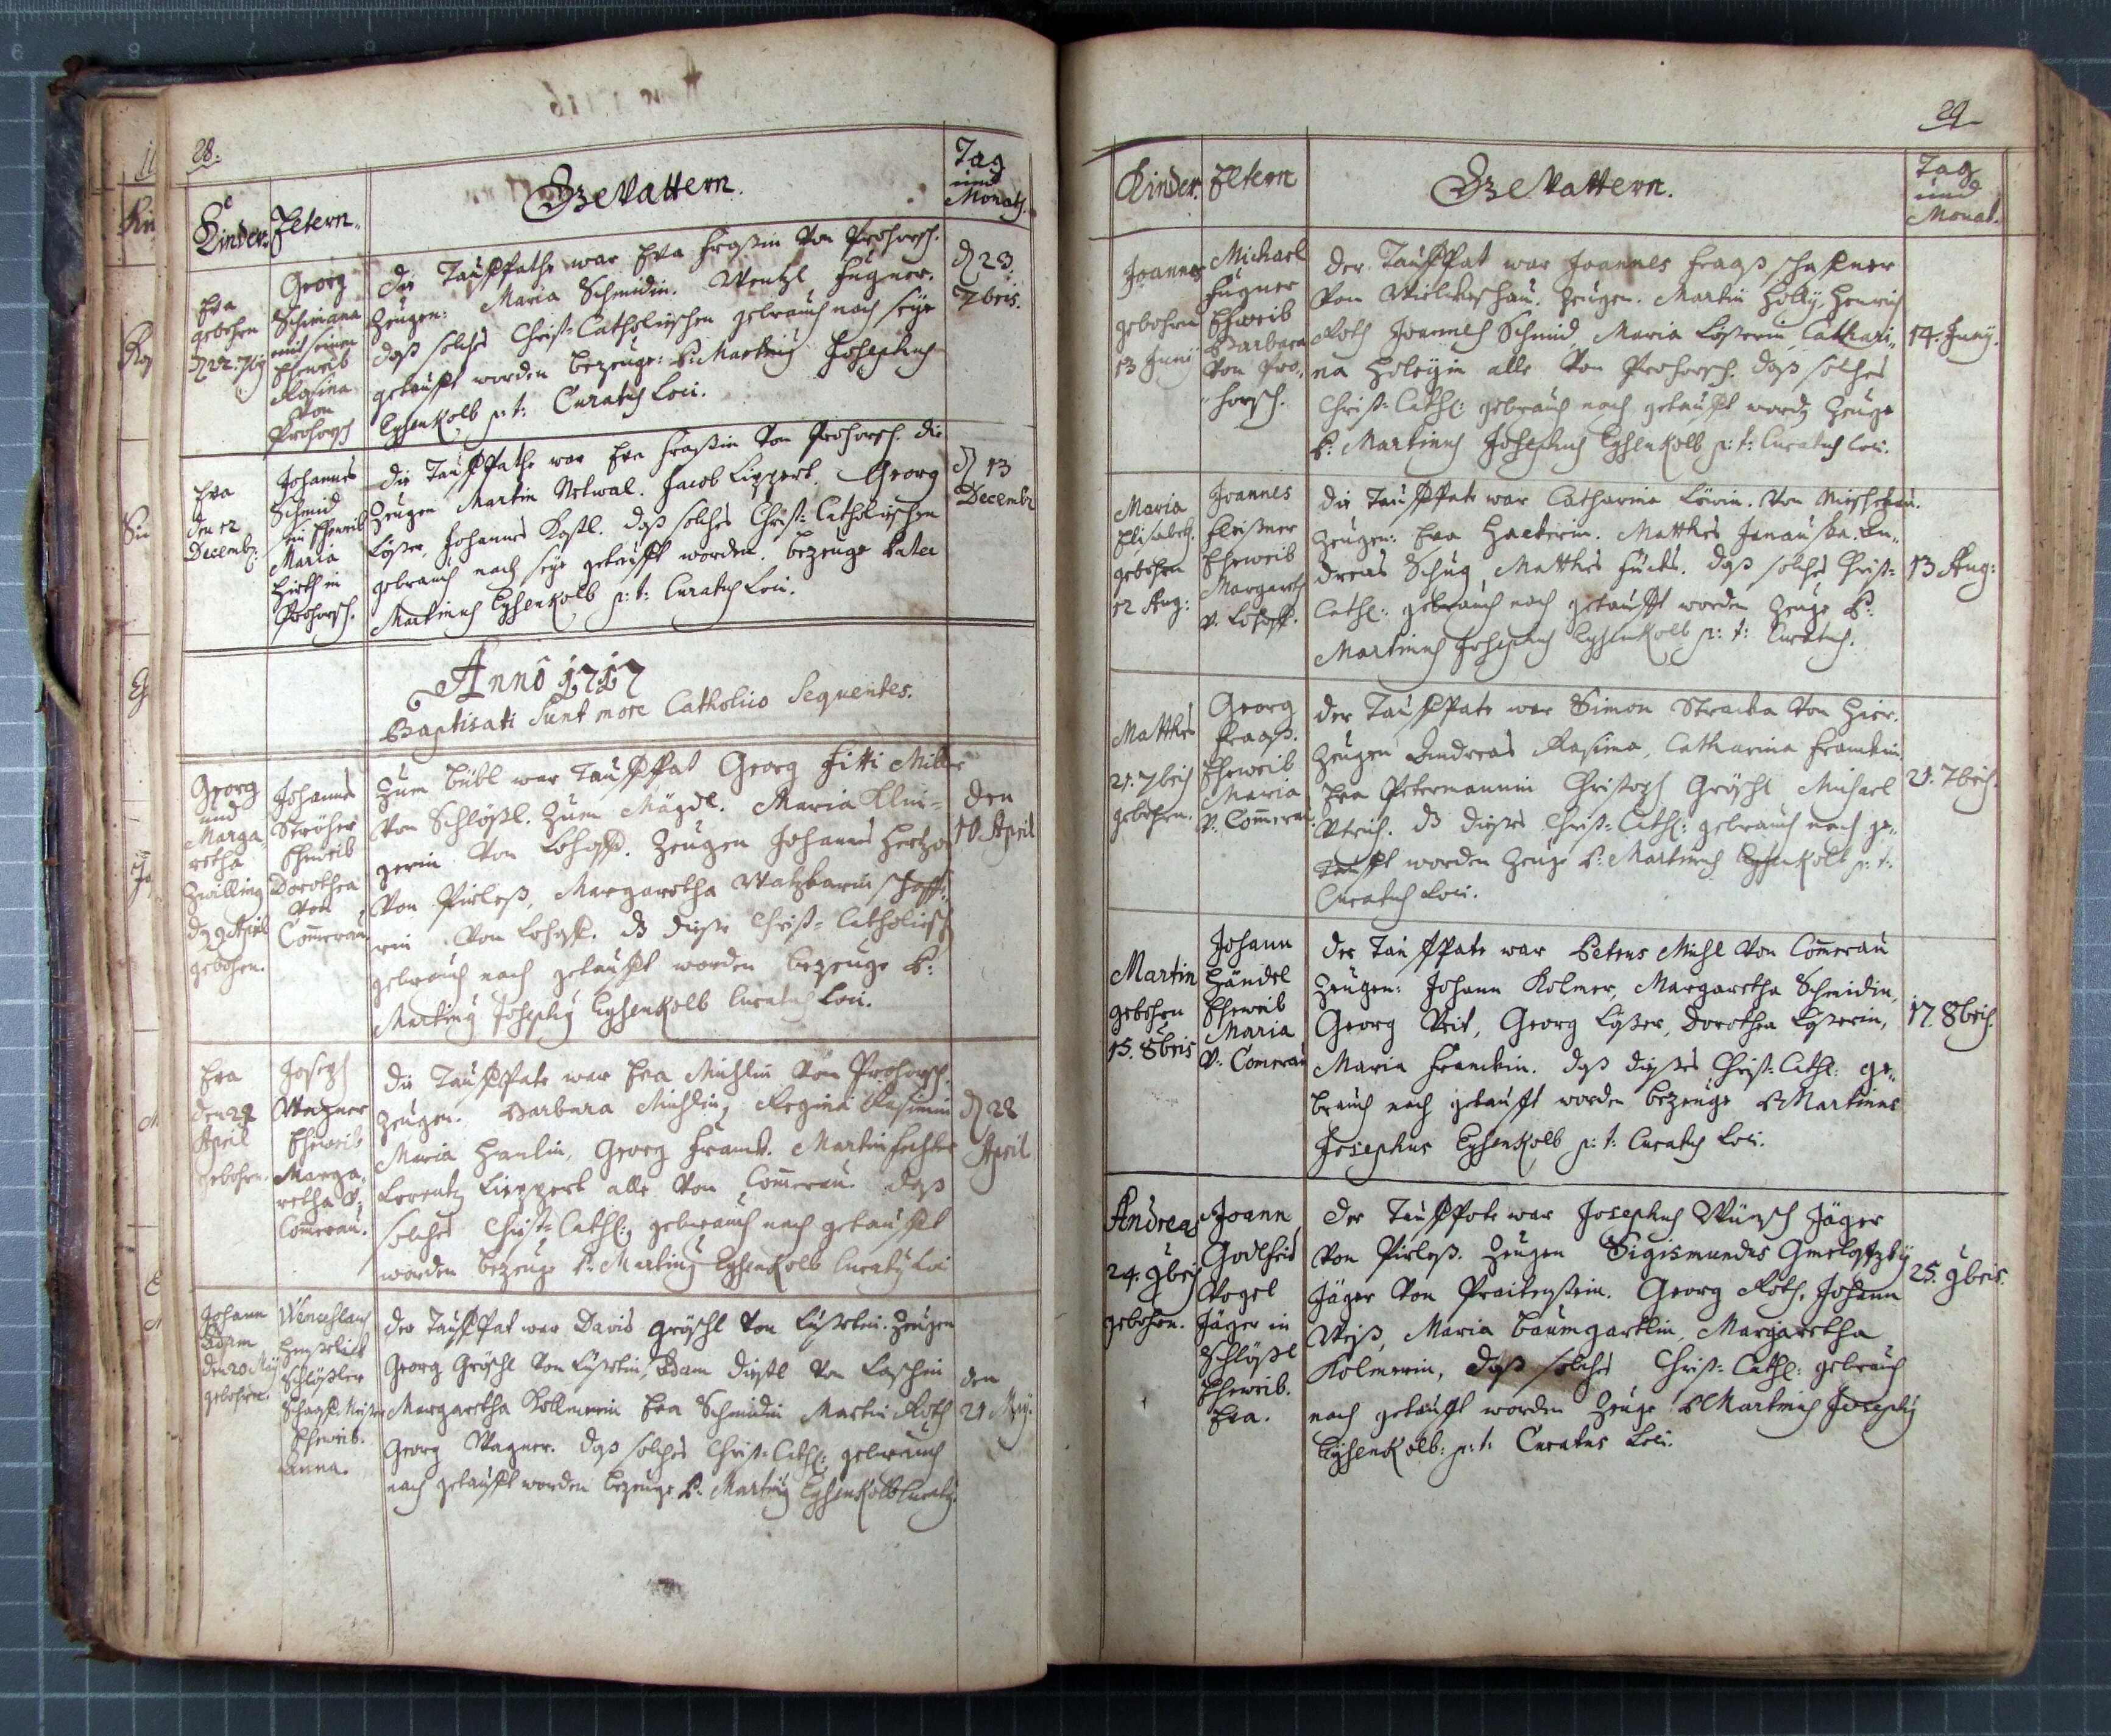 28.
Kinder. Eltern. Gevattern. Tag und Monath.
Eva
gebohren
d 22. 7bris
Georg
Schimana
und seinen
Eheweib
Rosina
von
Prohorsch
Die Tauffpathe war Eva Fraßin von Prohorsch.
Zeugen: Maria Schmidin. Wentzl Fugner.
daß solches Christ-Catholischen gebrauch nach seye
getaufft worden bezeuge: P: Martinus Josephus
Eysenkolb p: t: Curatus Loci.
d 23.
7bris.
Eva
den 12
Decemb:
Johannes
Schmid
sein Eheweib
Maria
Hirth in
Prohorsch.
Die Tauffpathe war Eva Fraßin von Prohorsch. die
Zeugen Martin Netwal. Jacob Lippert. Georg
Lößer, Johannes Kastl. daß solches Christ-Catholischen
gebrauch nach seye getaufft worden. bezeuge Pater
Martinus Eysenkolb p: t: Curatus Loci.
d 13
Decembr
Anno 1717
Baptisati Sunt more Catholico Sequentes.
Georg
und
Marga
retha
Zwilling
d 9 April
gebohren.
Johannes
Ströher
Eheweib
Dorothea
von
Commerau
Zum bübl war Tauffpat Georg Fitti Miller
von Schlößl. Zum Mägdl. Maria
gerin von Lohoff. Zeugen Johannes Hertzog
von Pirleß, Margaretha
rin von Lohoff. dz dieße Christ-Catholisch
gebrauch nach getaufft worden bezeuge P:
Martinus Josephus Eysenkolb Curatus Loci.
den
10 April
Eva
den 22
April
gebohren.
Joseph
Wagner
Eheweib
Marga,
retha v:
Commerau.
Die Tauffpate war Eva Michlin von Prohorsch.
Zeugen. Barbara Michlin, Regina Rasimin
Maria Hanlin, Georg Franck. Martin
Lorentz Lippert alle von Commerau. daß
solches Christ-Cathl: gebrauch nach getaufft
worden bezeuge P: Martinus Eysenkolb Curatus Loci
d 22
April
Johann
Adam
den 20 May
gebohren.
Wenceslaus
Schlößler
Eheweib.
Anna.
Der Tauffpat war David Gröschl von Zeugen
Georg Gröschl von Adam Diestl von
Margaretha Kollmerin Eva Schmidin Martin Roth
Georg Wagner. daß solches Christ-Cathl: gebrauch
nach getaufft worden bezeuge P: Martinus Eysenkolb Curatus.
den
21 May.
29
Kinder. Eltern Gevattern. Tag und Monat.
Joannes
gebohren
13 Juny
Michael
Fugner
Eheweib
Barbara
von Pro,,
horsch.
Der Tauffpat war Joannes Fraaß
von Zeugen. Martin Holly, Henrich
Roth Joannes Schmid, Maria Lößerin, Cathari,,
na alle von Prohorsch. daß solches
Christ-Cathl: gebrauch nach getaufft wordn Zeuge
P: Martinus Josephus Eysenkolb p: t: Curatus Loci.
14. Juny.
Maria
Elisabeth.
gebohren
12 Aug:
Joannes
Fleißner
Eheweib
Margareth
v. Lohoff.
Die Tauffpate war Catharina Löwin. von
Zeugen: Eva Matthes Janauska. An,,
dreas Schug, Matthes Fücks. daß solches Christ-
Cathl: gebrauch nach getaufft worden Zeuge P:
Martinus Josephus Eysenkolb p: t: Curatus.
13 Aug:
Matthes
21. 7bris
gebohren.
Georg
Fraaß.
Eheweib
Maria
v: Commerau.
Der Tauffpate war Simon Stracka von Hier.
Zeugen Andreas Rasima, Catharina Franckin
Eva Petermannin Christoph Gröschl Michael
Utrich. dz dießes Christ-Cathl: gebrauch nach ge,,
taufft worden Zeuge P: Martinus Eysenkolb p: t:
Curatus Loci.
21. 7bris.
Martin
gebohren
15. 8bris
Johann
Händel
Eheweib
Maria
v: Comerau
Der Tauffpate war Petrus Michl von Commerau
Zeugen: Johann Kolmer, Margaretha Schmidin,
Georg Veit, Georg Lößer, Dorothea Lößerin,
Maria Franckin. daß dießes Christ-Cathl: ge,,
brauch nach getaufft worden bezeuge P Martinus
Josephus Eysenkolb p: t: Curatus Loci.
17. 8bris.
Andreas
24. 9bris
gebohren.
Joann
Godlfrid
Vogel
Jäger in
Schlößl
Eheweib.
Eva.
Der Tauffpate war Josephus Wünsch Jäger
von Pirleß. Zeugen Sigismundus
Jäger von Preitenstein. Georg Roth, Johann
Weiß, Maria Baumgartlin, Margaretha
Kolmerin, daß solches Christ-Cathl: gebrauch
nach getaufft worden Zeuge P Martinus Josephus
Eysenkolb: p: t: Curatus Loci.
25. 9bris.